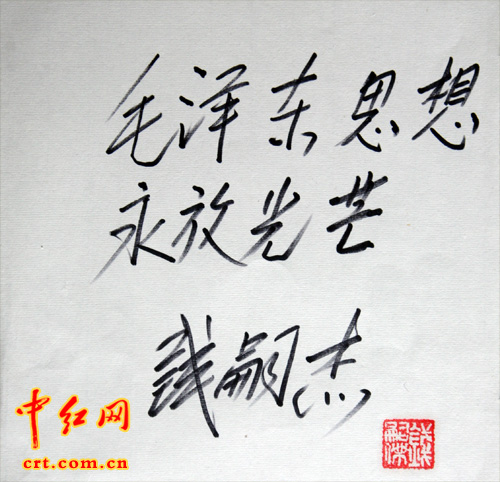 毛泽东思想
永放光芒
钱嗣杰
中红网
crt.com.cn